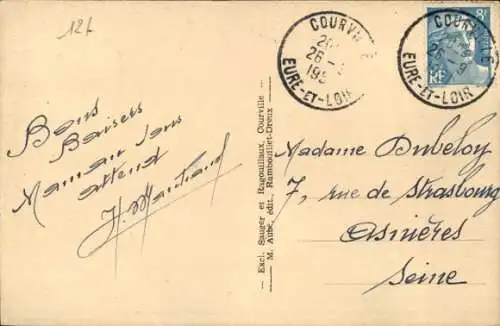 12f
Bons
Baisers
Maman vous
attend
H. Marchand
— Excl. Sauger et Ragouilliaux, Courville —
— M. Aubé, édit., Rambouillet-Dreux —
COURVILLE
26 -
195
EURE-ET-LOIR
COURVILLE
26 -
EURE-ET-LOIR
8F
RF
Madame Dubeloy
7, rue de Strasbourg
Asnières
Seine